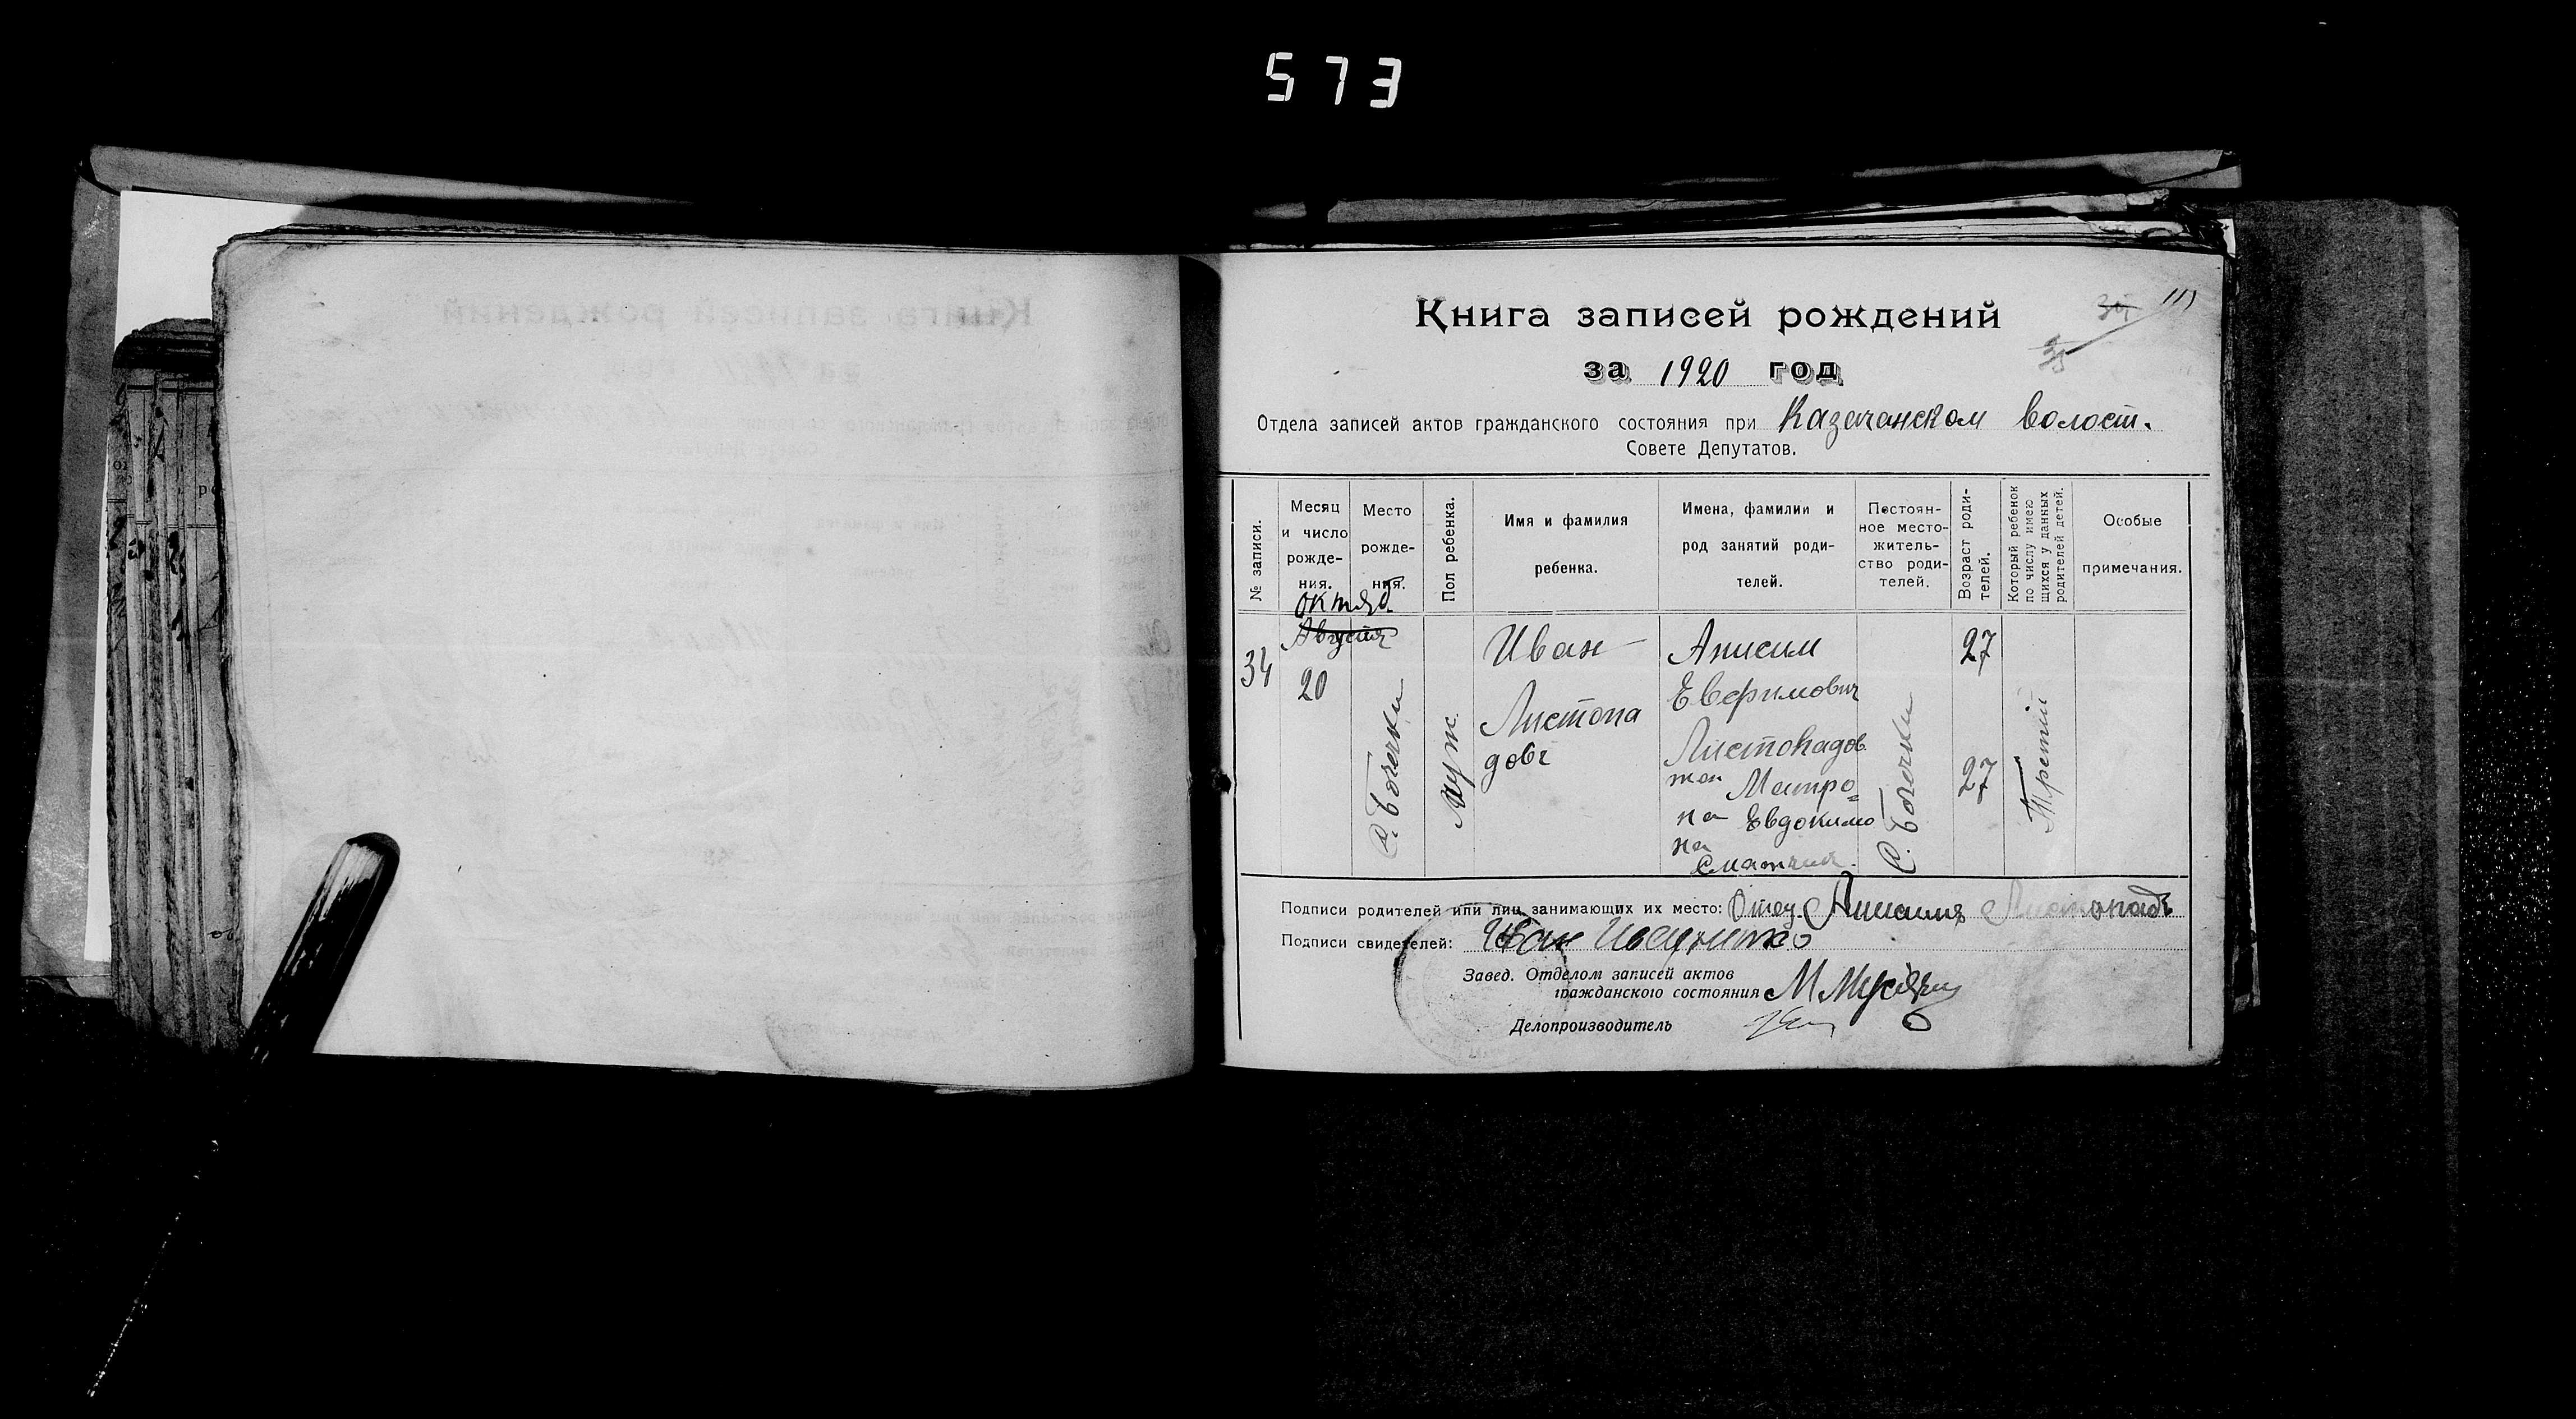 573
Книга записей рождений
за 1920 год
34
111
35
Отдела записей актов гражданского состояния при Казачанском волост.
Совете Депутатов.
№ записи.
Месяц и число рожде- ния.
Место рожде- ния.
Пол ребенка.
Имя и фамилия ребенка.
Имена, фамилии и род занятий роди- телей.
Постоян- ное место- житель- ство роди- телей.
Возраст роди- телей.
Который ребенок по числу имею щихся у данных родителей детей.
Особые примечания.
34
октяб.
Августа
20
с. Бочечки
муж
Иван
Листопа
довъ
Анисим
Евфимович
Листопадов
жен
Матро=
на Евдокимо
на
с. Бочечки
27
27
Третий
Подписи родителей или лиц занимающих их место: Отец Анисимъ Листопадъ
Подписи свидетелей: Иван
Завед. Отделом записей актов
гражданского состояния
Делопроизводитель